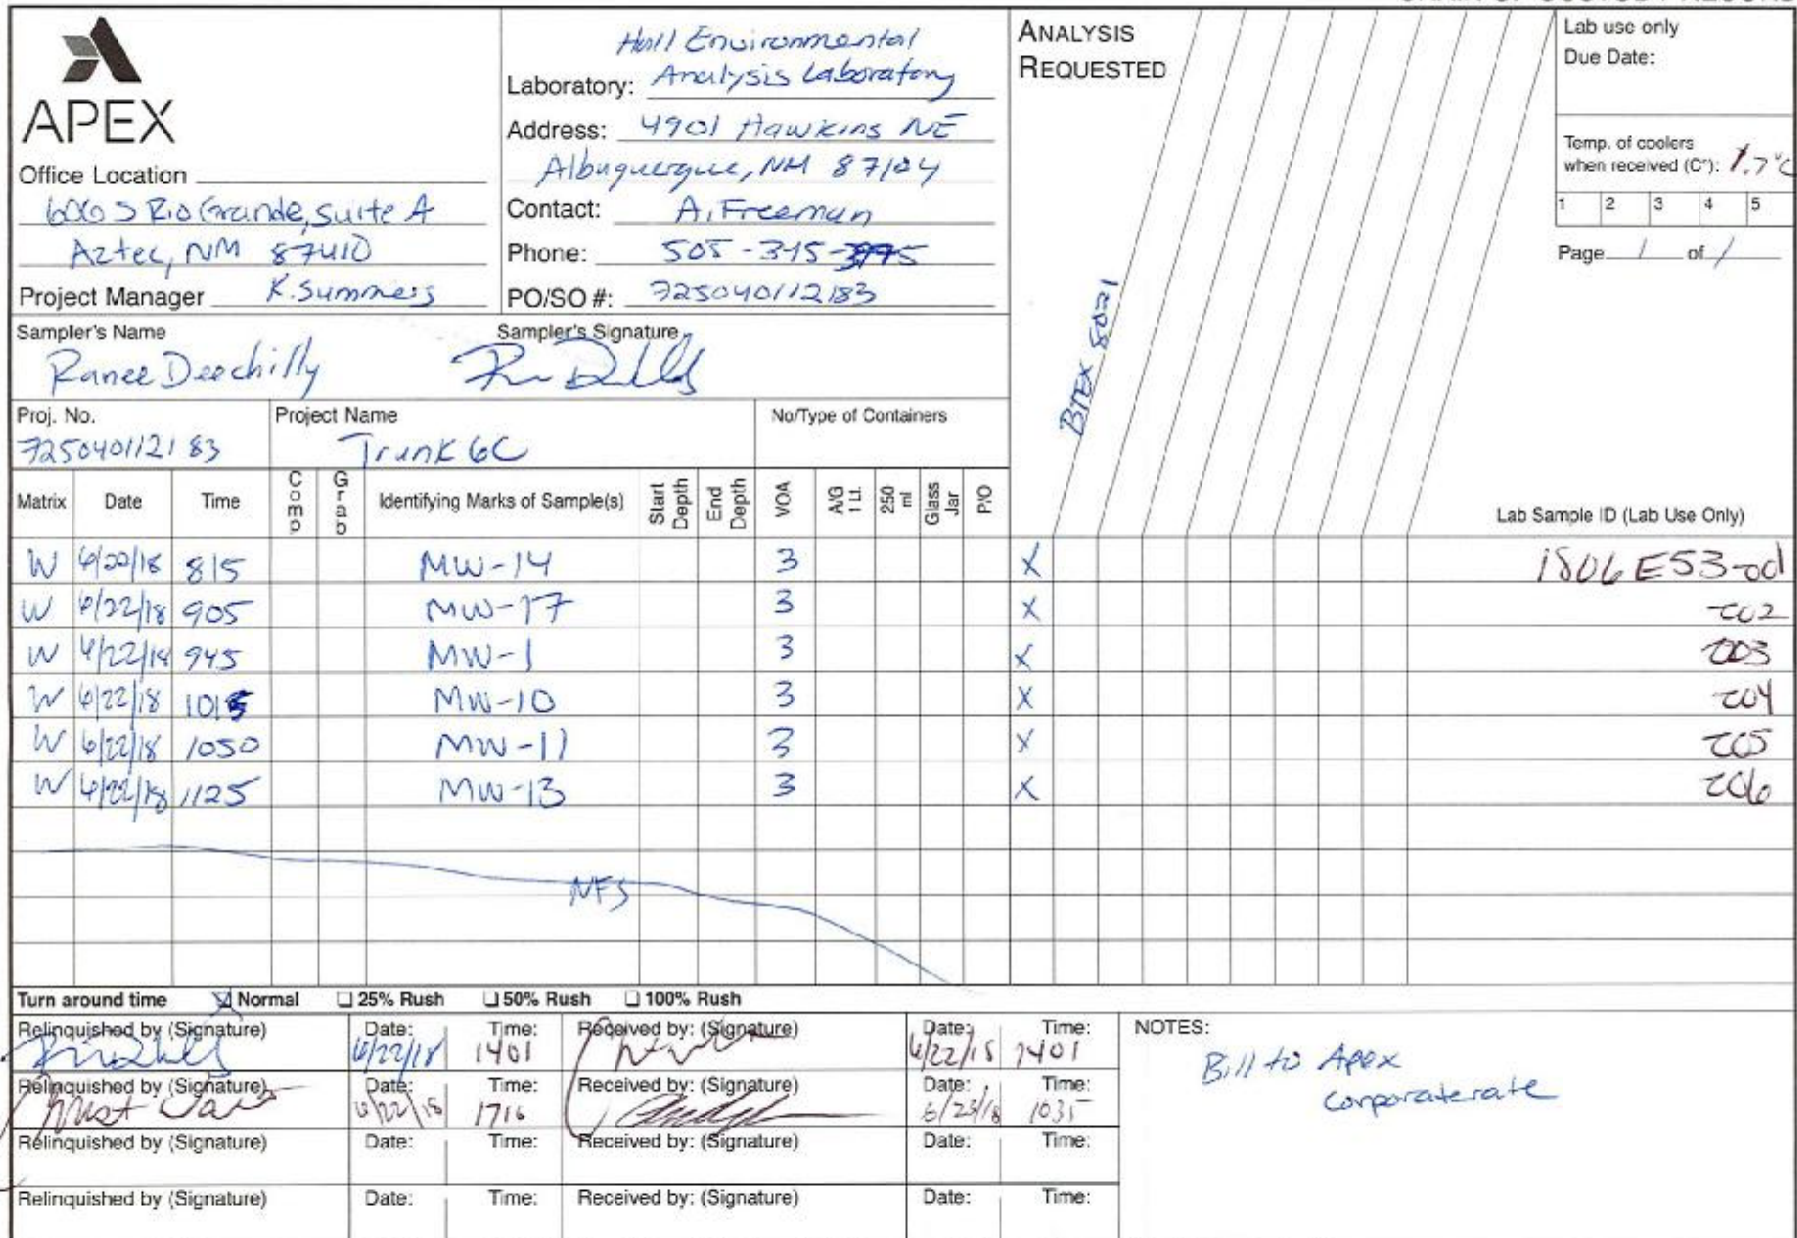 APEX
Office Location
606 S Rio Grande, Suite A
Aztec, NM 87410
Project Manager K. Summers
Hall Environmental
Laboratory: Analysis Laboratory
Address: 4901 Hawkins NE
Albuquerque, NM 87104
Contact: A. Freeman
Phone: 505-345-3975
PO/SO #: 725040112183
ANALYSIS
REQUESTED
BTEX 8021
Lab use only
Due Date:
Temp. of coolers
when received (C°): 1.7°C
1 2 3 4 5
Page 1 of 1
Sampler's Name
Ranee Deechilly
Sampler's Signature
Proj. No.
725040112183
Project Name
Trunk 6C
No/Type of Containers
Matrix Date Time Comp Grab Identifying Marks of Sample(s) Start Depth End Depth VOA A/G 1 Lt. 250 ml Glass Jar P/O Lab Sample ID (Lab Use Only)
W 6/22/18 815 MW-14 3 X 1806E53-001
W 6/22/18 905 MW-17 3 X -002
W 6/22/18 945 MW-1 3 X -003
W 6/22/18 1015 MW-10 3 X -004
W 6/22/18 1050 MW-11 3 X -005
W 6/22/18 1125 MW-13 3 X -006
NFS
Turn around time Normal 25% Rush 50% Rush 100% Rush
Relinquished by (Signature) Date: 6/22/18 Time: 1401 Received by: (Signature) Date: 6/22/18 Time: 1401
Relinquished by (Signature) Date: 6/22/18 Time: 1716 Received by: (Signature) Date: 6/23/18 Time: 1035
Relinquished by (Signature) Date: Time: Received by: (Signature) Date: Time:
Relinquished by (Signature) Date: Time: Received by: (Signature) Date: Time:
NOTES:
Bill to Apex
corporaterate